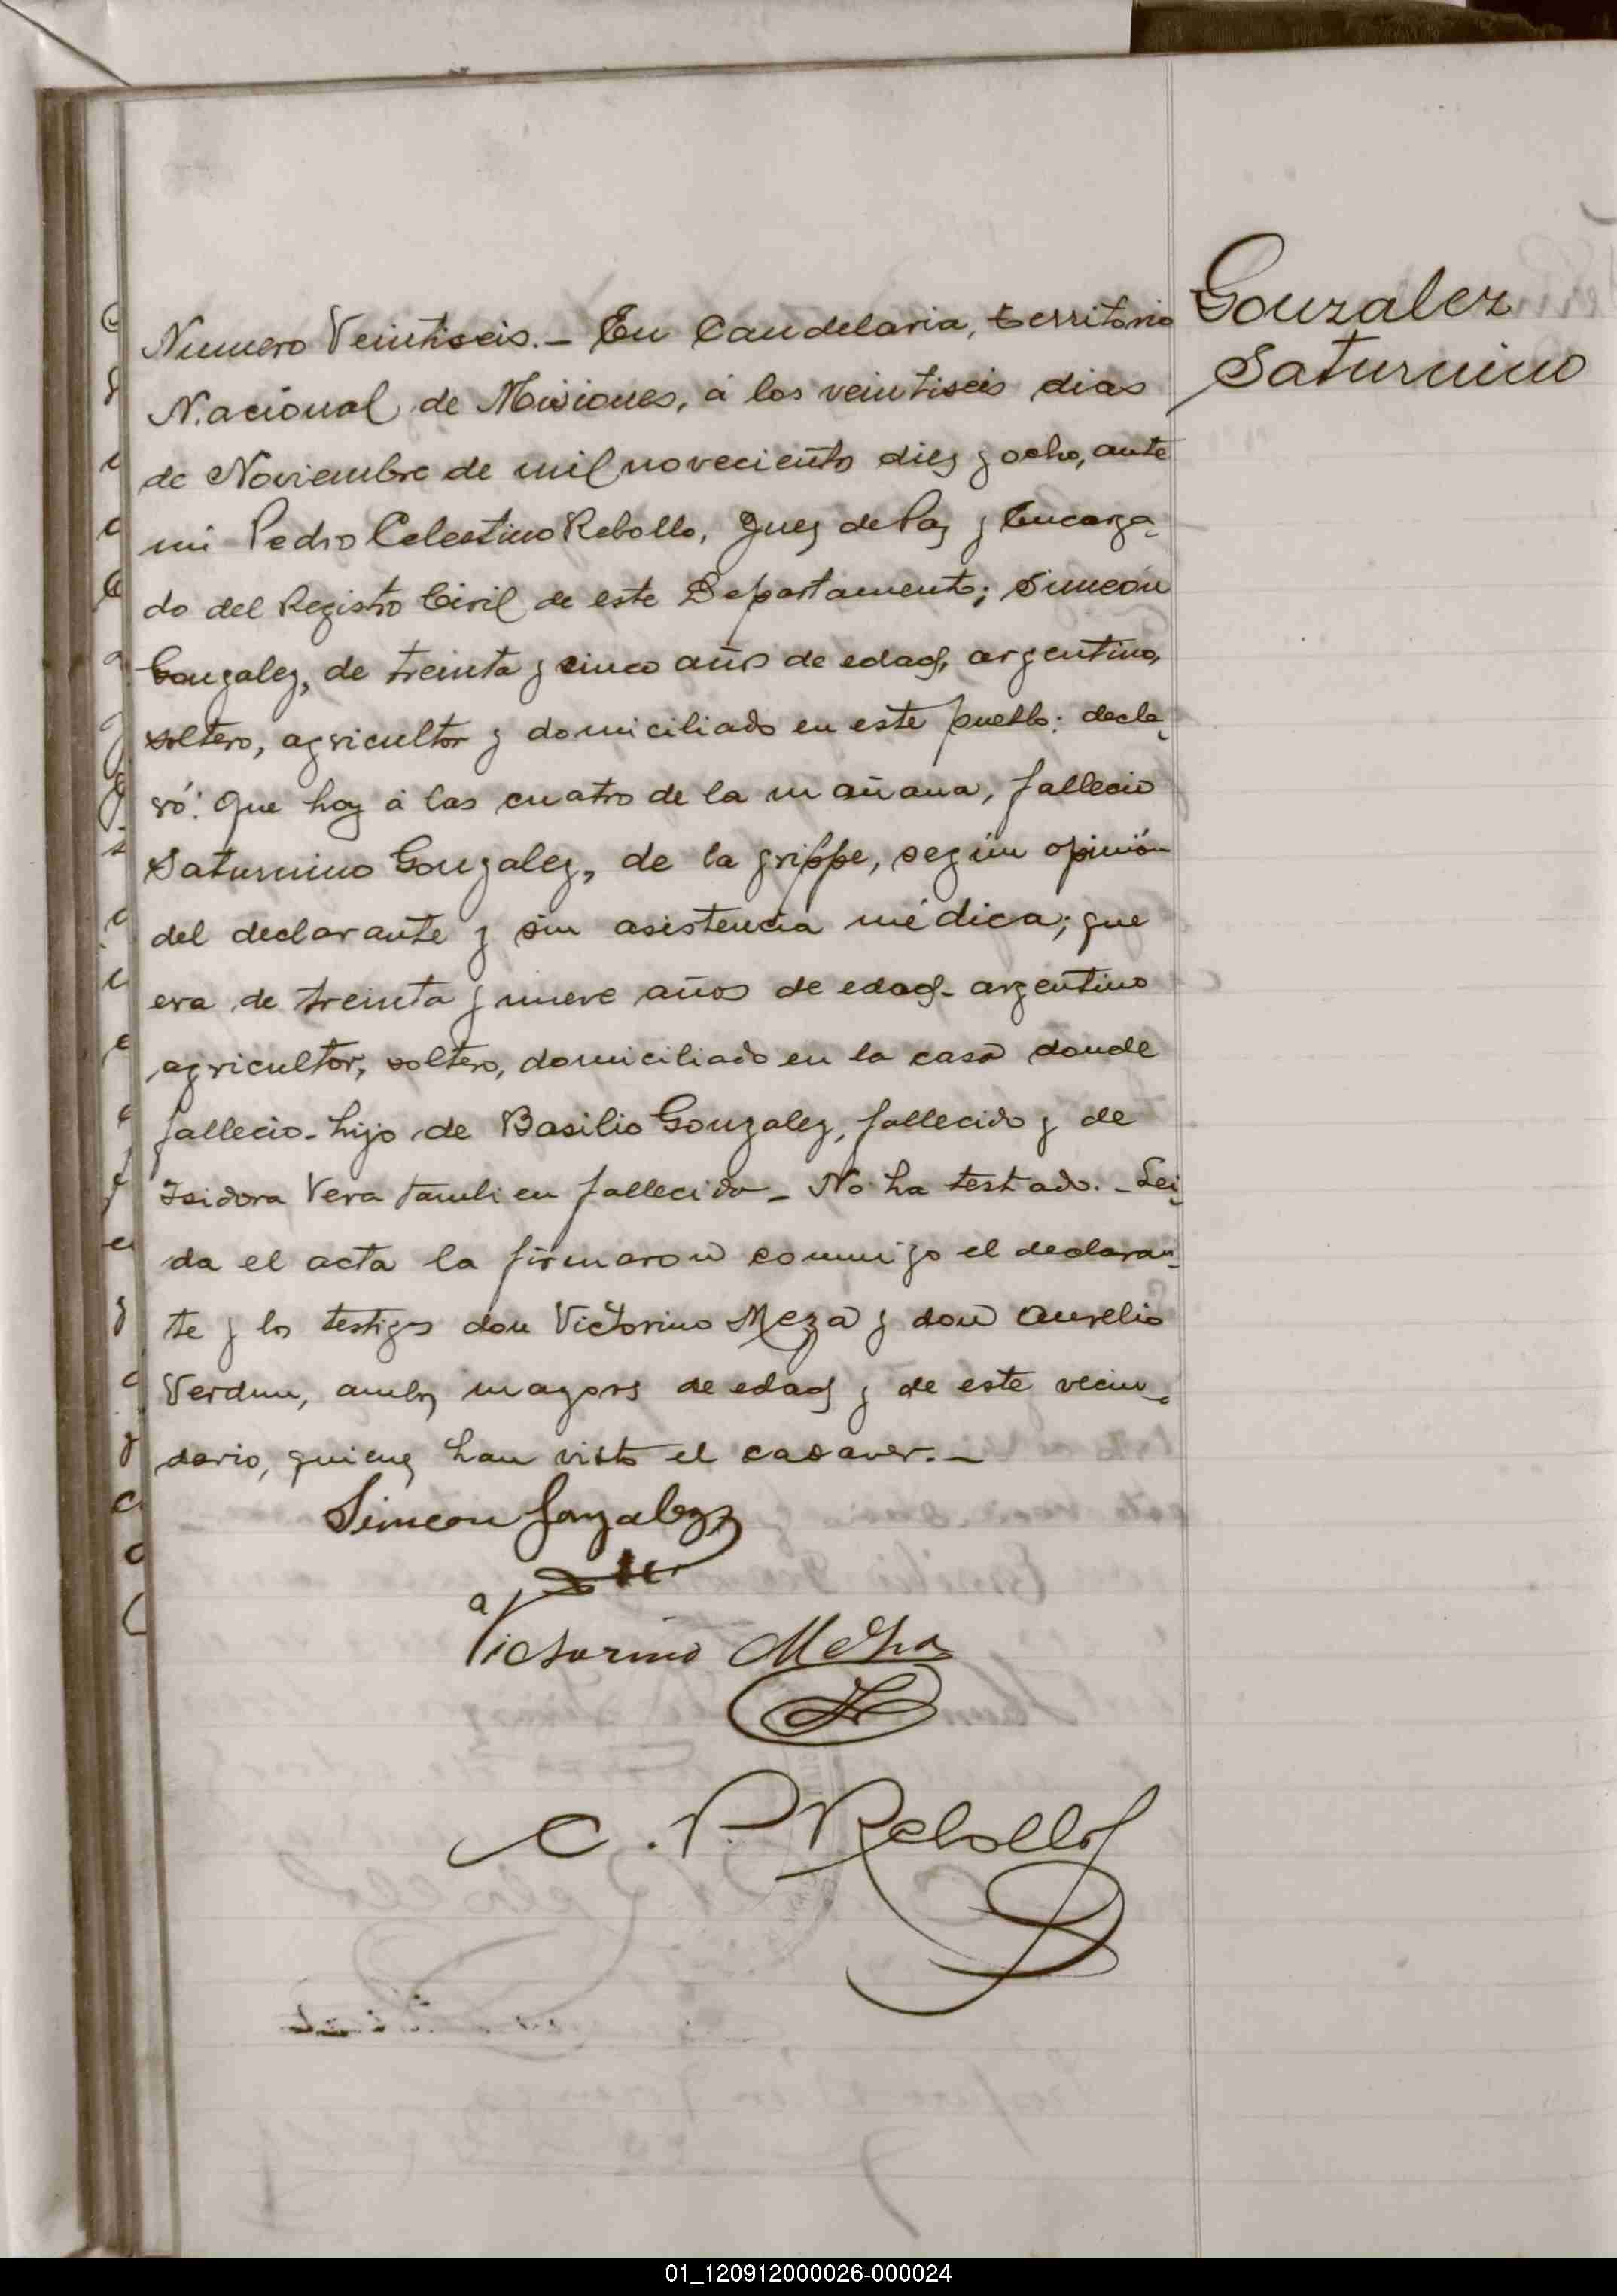 Gonzalez
Saturnino
Numero Veintiseis.- En Candelaria, territorio
Nacional de Misiones, á los veintiseis dias
de Noviembre de mil novecientos diez y ocho, ante
mi Pedro Celestino Rebollo, Juez de Paz y Encarga-
do del Registro Civil de este Departamento; Simeon
Gonzalez, de treinta y cinco años de edad, argentino,
soltero, agricultor y domiciliado en este pueblo: decla-
ró: Que hoy á las cuatro de la mañana, fallecio
Saturnino Gonzalez, de la grippe, según opinión
del declarante y sin asistencia médica; que
era de treinta y nueve años de edad- argentino
agricultor, soltero, domiciliado en la casa donde
fallecio- hijo de Basilio Gonzalez, fallecido y de
Isidora Vera tambien fallecida- No ha testado.- Lei-
da el acta la firmaron conmigo el declaran-
te y los testigos don Victorino Meza y don Aurelio
Verdun, ambos mayores de edad y de este vecin-
dario, quienes han visto el cadaver.-
Simeon Gonzalez
Victorino Meza
C. P. Rebollo
01_120912000026-000024